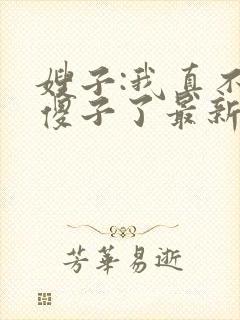 嫂子:我真不
傻子了最新
芳華易逝